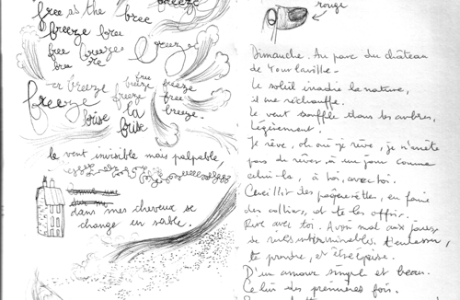 free as the breeze
freeze free
free breezes
free
breeze
free
breeze
freeze
breeze
freeze
free
breeze.
la
brise
le vent invisible mais palpable,
dans mes cheveux se
change en sable.
rouge
Dimanche. Au parc du château
de Tourlaville.
Le soleil irradie la nature,
il me réchauffe.
Le vent souffle dans les arbres,
légèrement.
Je rêve, oh oui je rêve, je n'arrête
pas de rêver à un jour comme
celui-là, à toi, avec toi.
Cueillir des pâquerettes, en faire
des colliers, et te les offrir.
Rire avec toi. Avoir mal aux joues
de rires interminables.
te prendre, et
D'un amour simple et beau.
Celui des premières fois.